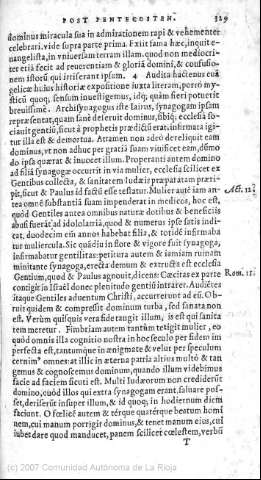 POST PENTECOSTEN. 329
dominus miracula sua in admirationem rapi & vehementer
celebrari. vide supra parte prima. Exiit fama hæc, inquit e-
uangelista, in vniuersam terram illam. quod non mediocri-
ter etiã fecit ad reuerentiam & gloriã domini, & confusio-
nem istorũ qui irriserant ipsum. 4 Audita hactenus euã
gelicæ huius historiæ expositione iuxta literam, porrò my-
sticũ quoq; sensum inuestigemus, idq; quàm fieri poterit
breuissimè. Archisynagogus iste Iairus, synagogam ipsam
repræsentat, quam sanè deseruit dominus, sibiq; ecclesiã so-
ciauit gentiũ, sicut à prophetis prædictũ erat. infirmata igi-
tur illa est & demortua. Attamen non adeò dereliquit eam
dominus, vt non adhuc per gratiã suam viuificet eam, dũmo
do ipsa quærat & inuocet illum. Properanti autem domino
ad filiã synagogæ occurrit in via mulier, ecclesia scilicet ex
Gentibus collecta, & sanitatem Iudæis præparatam præri-
pit, sicut & Paulus id factũ esse testatur. Mulier autẽ iam an-
tea omnẽ substantiã suam impenderat in medicos, hoc est,
quòd Gentiles antea omnibus naturæ dotibus & beneficiis
abusi fuerãt ad idololatriã, quod & numerus ipse satis indi-
cat. duodecim enĩ annos habebat filia, & totidẽ infirmaba
tur muliercula. Sic quãdiu in flore & vigore fuit synagoga,
infirmabatur gentilitas: petitura autem & iamiam ruinam
minitante synagoga, erecta demum & extructa est ecclesia
Gentium, quod & Paulus agnouit, dicens: Cæcitas ex parte
contigit in Israël donec plenitudo gentiũ intraret. Audiẽtes
itaque Gentiles aduentum Christi, accurrerunt ad eũ. Ob-
ruit quidem & compressit dominum turba, sed sanata non
est. Verùm quisquis vera fide tangit illum, is est qui sanita
tem meretur. Fimbriam autem tantùm tetigit mulier, eo
quòd omnis illa cognitio nostra in hoc seculo per fidem im
perfecta est, tantumque in ænigmate & velut per speculum
cernimꝰ omnes: at illic in æterna patria altius multò & tan-
gemus & cognoscemus dominum, quando illum videbimus
facie ad faciem sicuti est. Multi Iudæorum non crediderũt
domino, cuiò d illos qui extra synagogam erant, saluare pos-
set, deriserũt insuper illum, & id quoq; in hodiernum diem
faciunt. O fœlicẽ autem & terque quaterque beatum homi
nem, cui manum porrigit dominus, & tenet manum eius, cui
iubet dare quod manducet, panem scilicet cœlestem, verbũ
T
Act. 12?
Rom. 11:
(c) 2007 Comunidad Autónoma de La Rioja